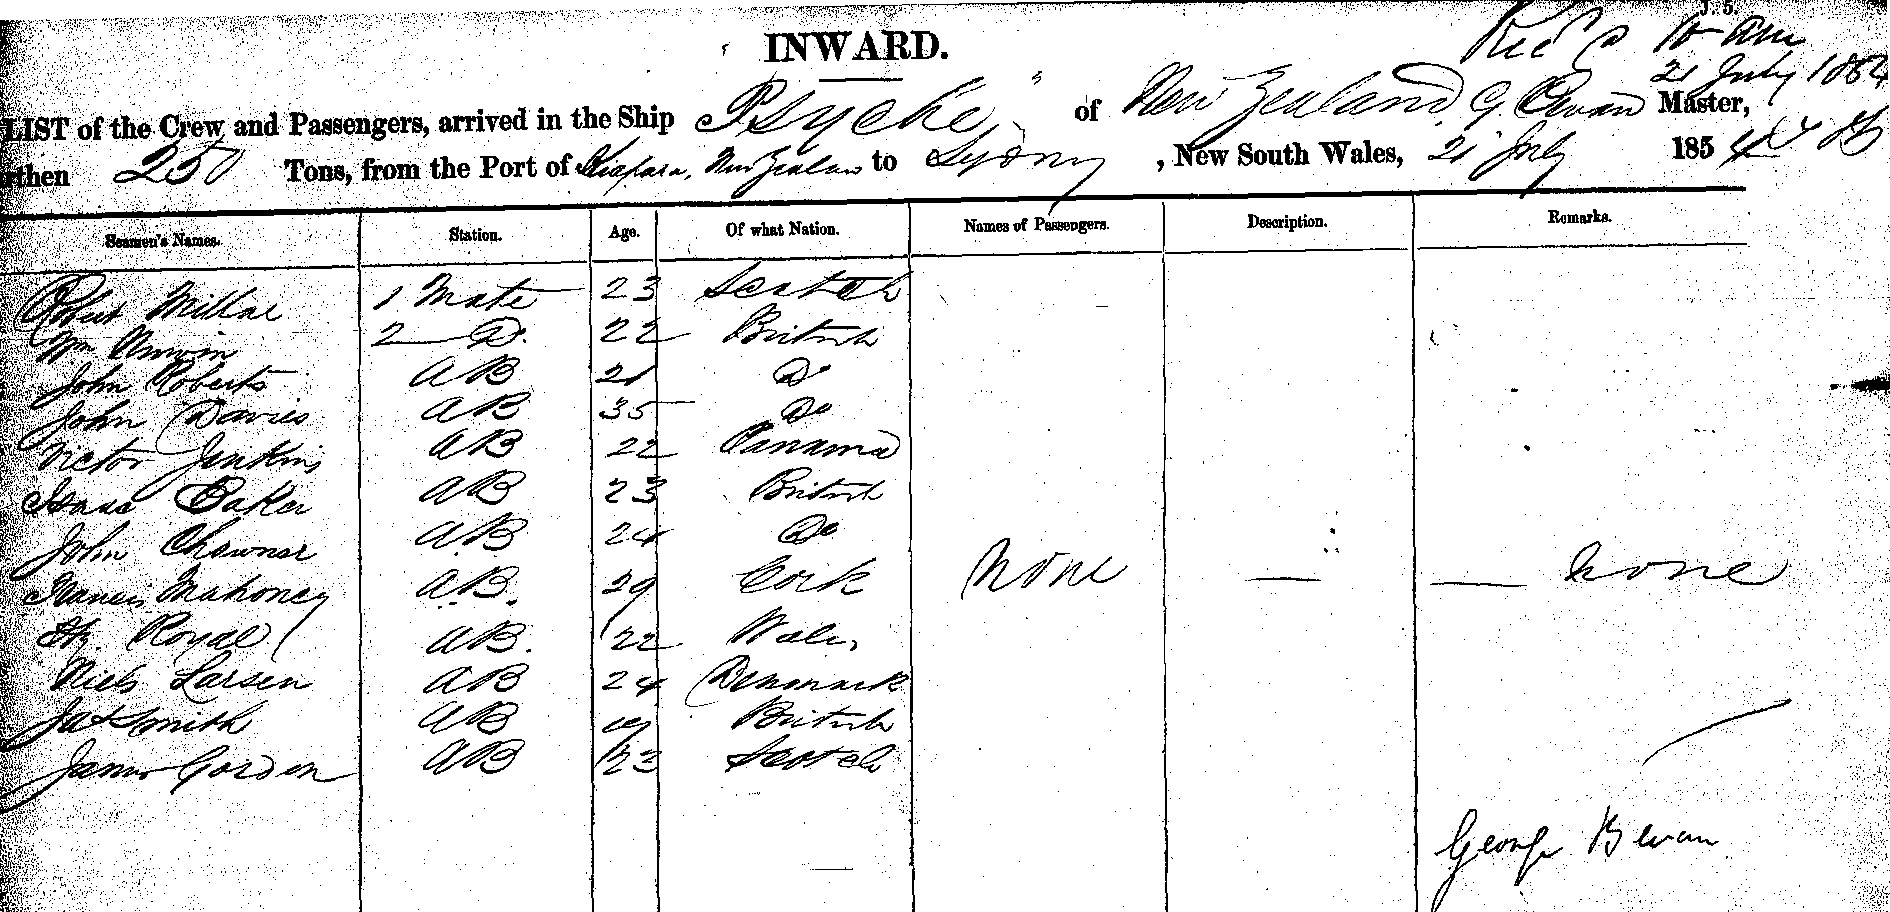 J. 5.
INWARD.
Rec'd 10 am
21 July 1854
LIST of the Crew and Passengers, arrived in the Ship "Psyche" of New Zealand, G. Bevan Master,
Burthen 250 Tons, from the Port of Kiapara, New Zealand to Sydney, New South Wales, 21 July 1854
Seamen's Names. Station. Age. Of what Nation. Names of Passengers. Description. Remarks.
Robert Millar 1 Mate 23 Scotch
Wm 2 Do. 22 British
John Roberts AB 21 Do
John Davies AB 35 Do
Victor Jenkins AB 22 Panama
Isaac Baker AB 23 British
John Chawner AB 24 Do
Francis Mahoney AB. 29 Cork None — — None
Hy. Royal AB. 22 Wales
Niels Larsen AB 24 Denmark
Jas Smith AB 19 British
James Gorden AB 23 Scotch
George Bevan